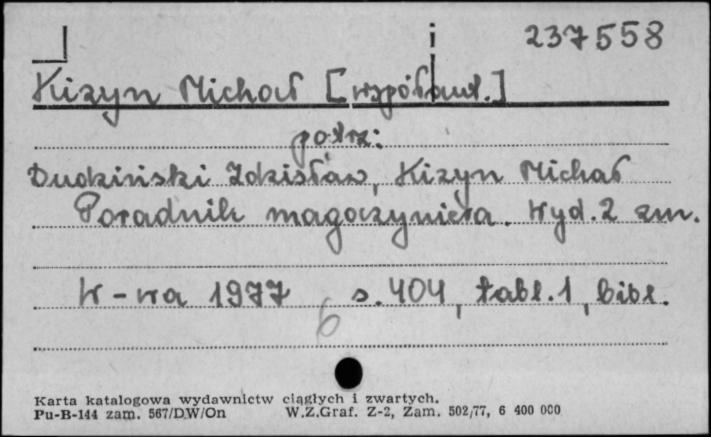 237558
Kizyn Michał [współaut.]
patrz:
Dudziński Zdzisław, Kizyn Michał
Poradnik magazyniera. Wyd. 2 zm.
W-wa 1977 s. 404, tabl. 1, bibl.
6
Karta katalogowa wydawnictw ciągłych i zwartych.
Pu-B-144 zam. 567/DW/On W.Z.Graf. Z-2, Zam. 502/77, 6 400 000